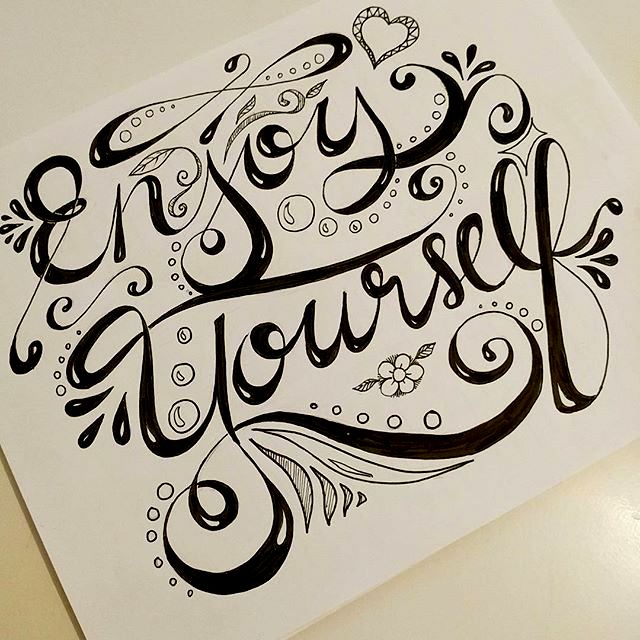 Enjoy
Yourself